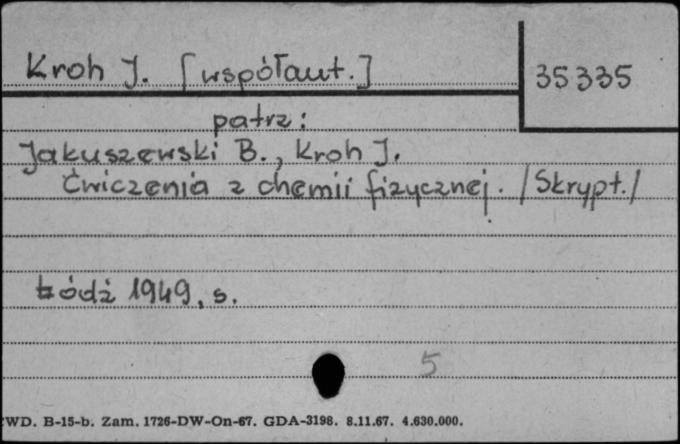 Kroh J. [współaut.]
35335
patrz:
Jakuszewski B., Kroh J.
Ćwiczenia z chemii fizycznej. /Skrypt./
Łódź 1949, s.
5
WD. B-15-b. Zam. 1726-DW-On-67. GDA-3198. 8.11.67. 4.630.000.